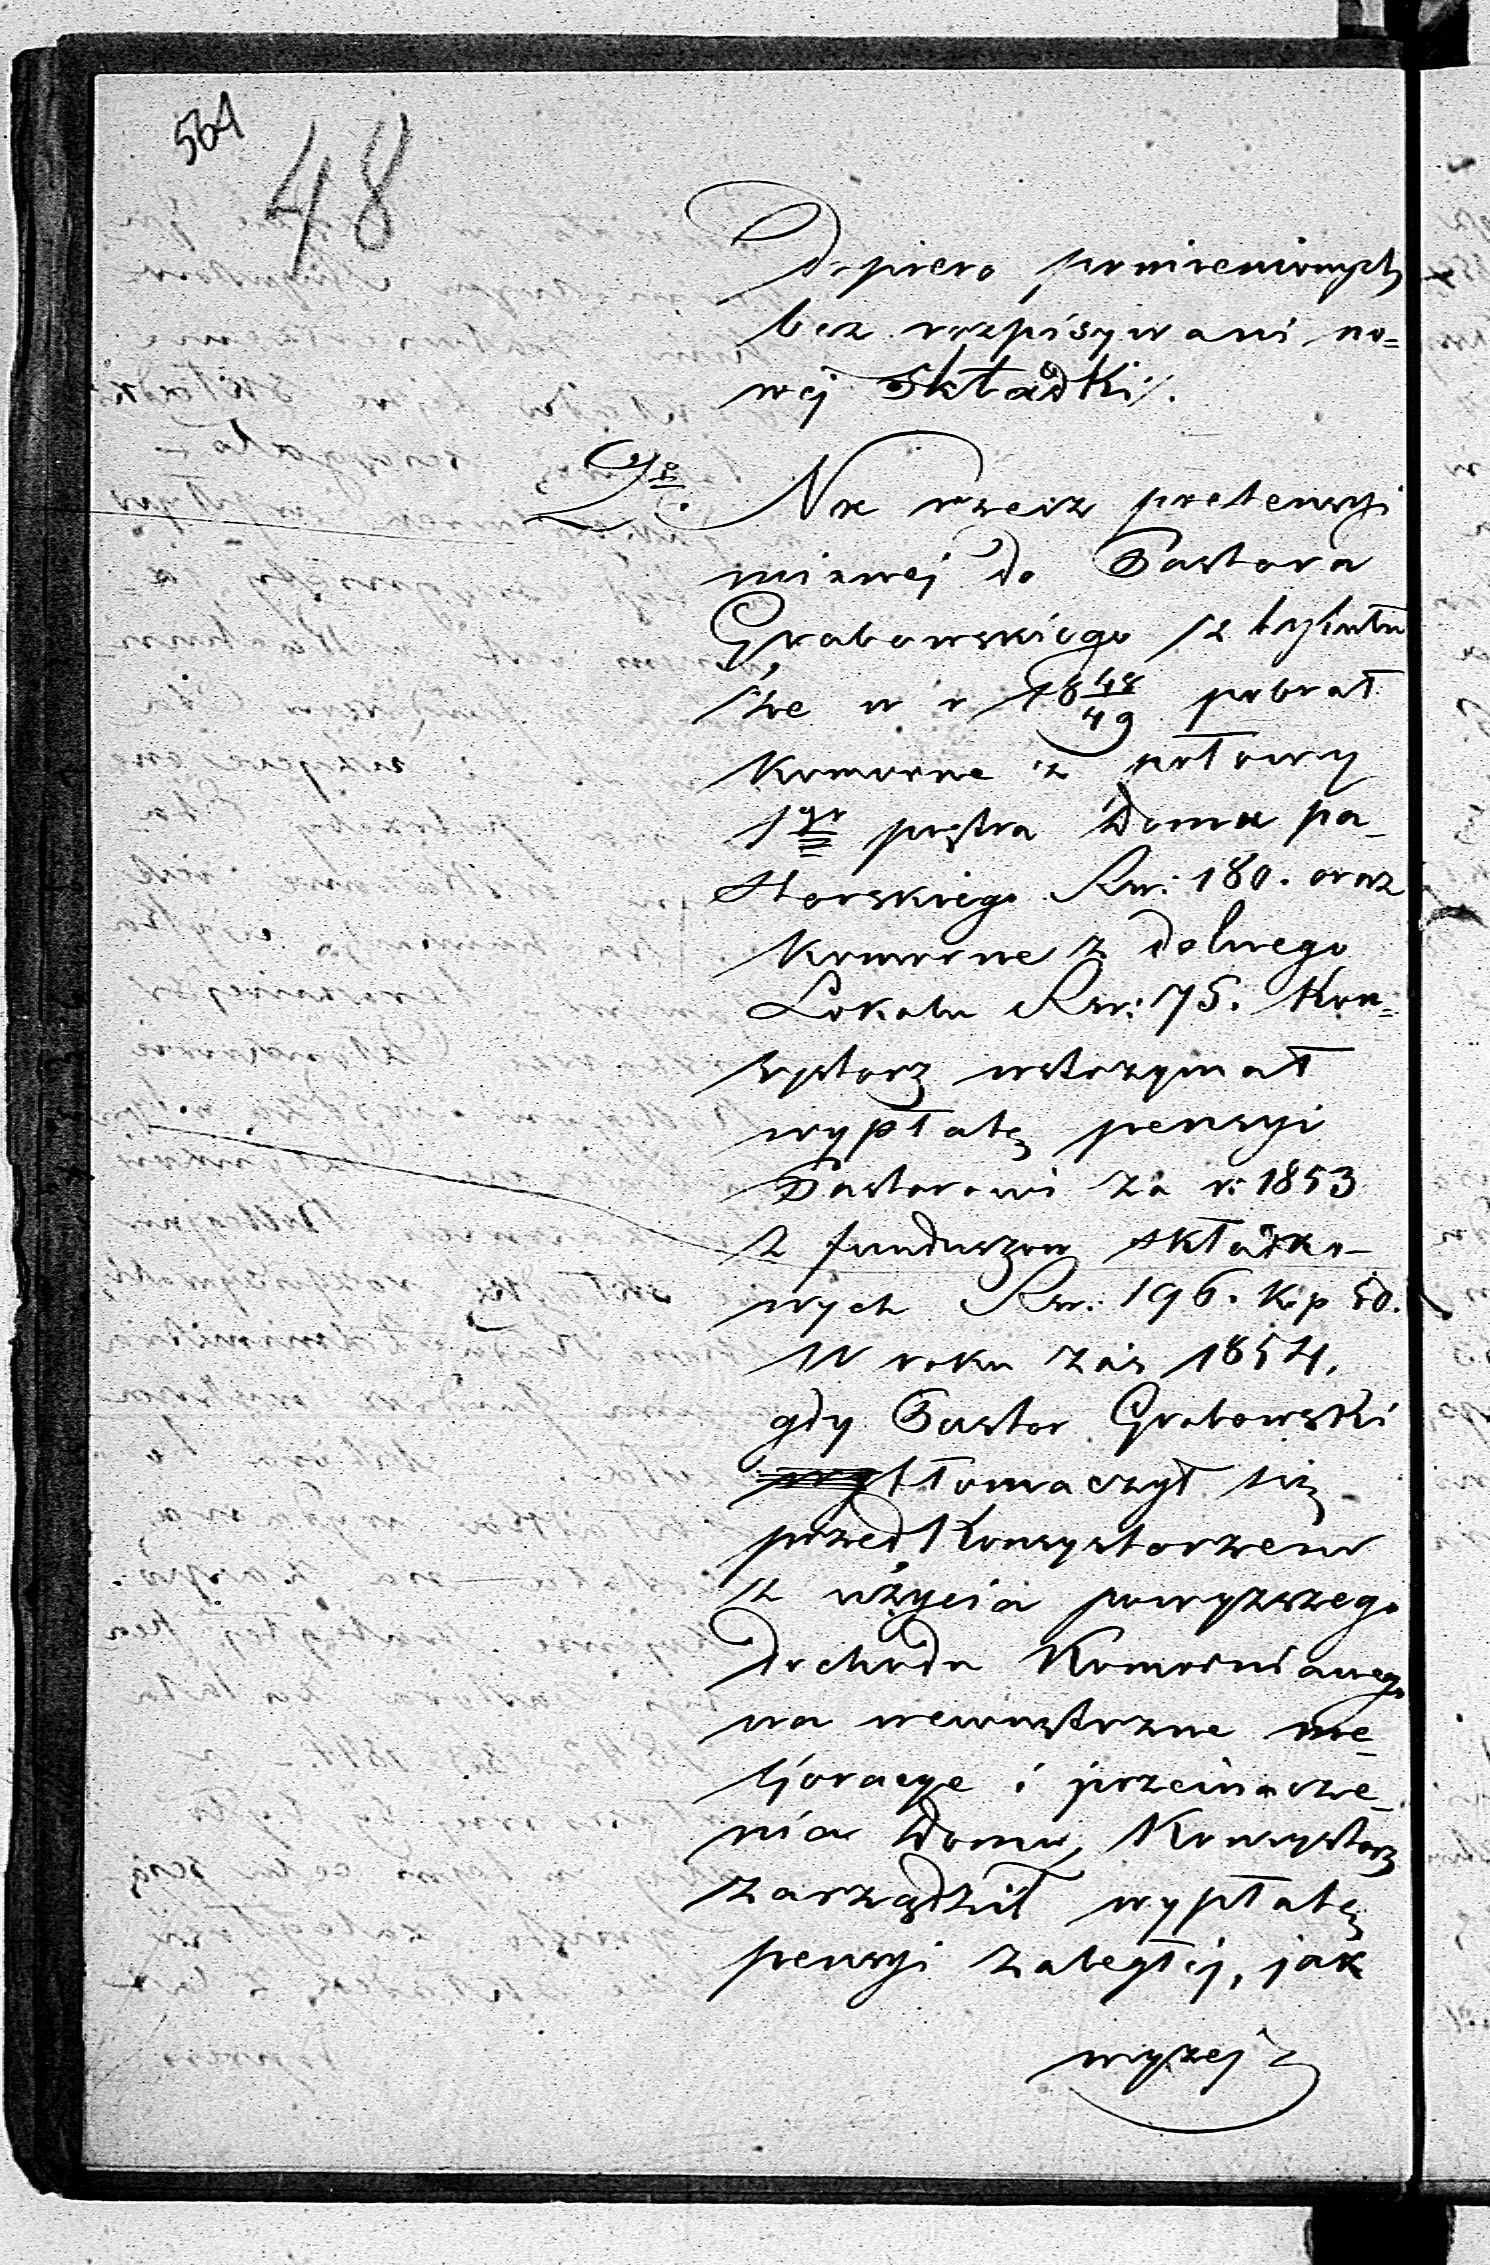 564
48
Dopiero pomienionych
bez rozpisywani no=
wej Składki.
2do. Na rzecz pretensyi
mianej do Pastora
Grabowskiego z tytułu
że w r 18 48/49 pobrał
komorne z połowy
1go piętra Domu pa-
storskiego Rsr: 180. oraz
komorne z dolnego
Lokalu Rsr: 75. Kon=
systorz wstrzymał
wypłatę pensyi
Pastorowi za r: 1853
z funduszow składko-
wych Rsr: 196. kp 50.
W roku zaś 1854,
gdy Pastor Grabowski
tłomaczył się
przed Konsystorzem
z użycia powyższego
Dochodu Komornianego
na wewnętrzne me-
ljoracye i przeinacze-
nia Domu, Konsystorz
zarządził wypłatę
pensyi zaległéj, jak
wyżej